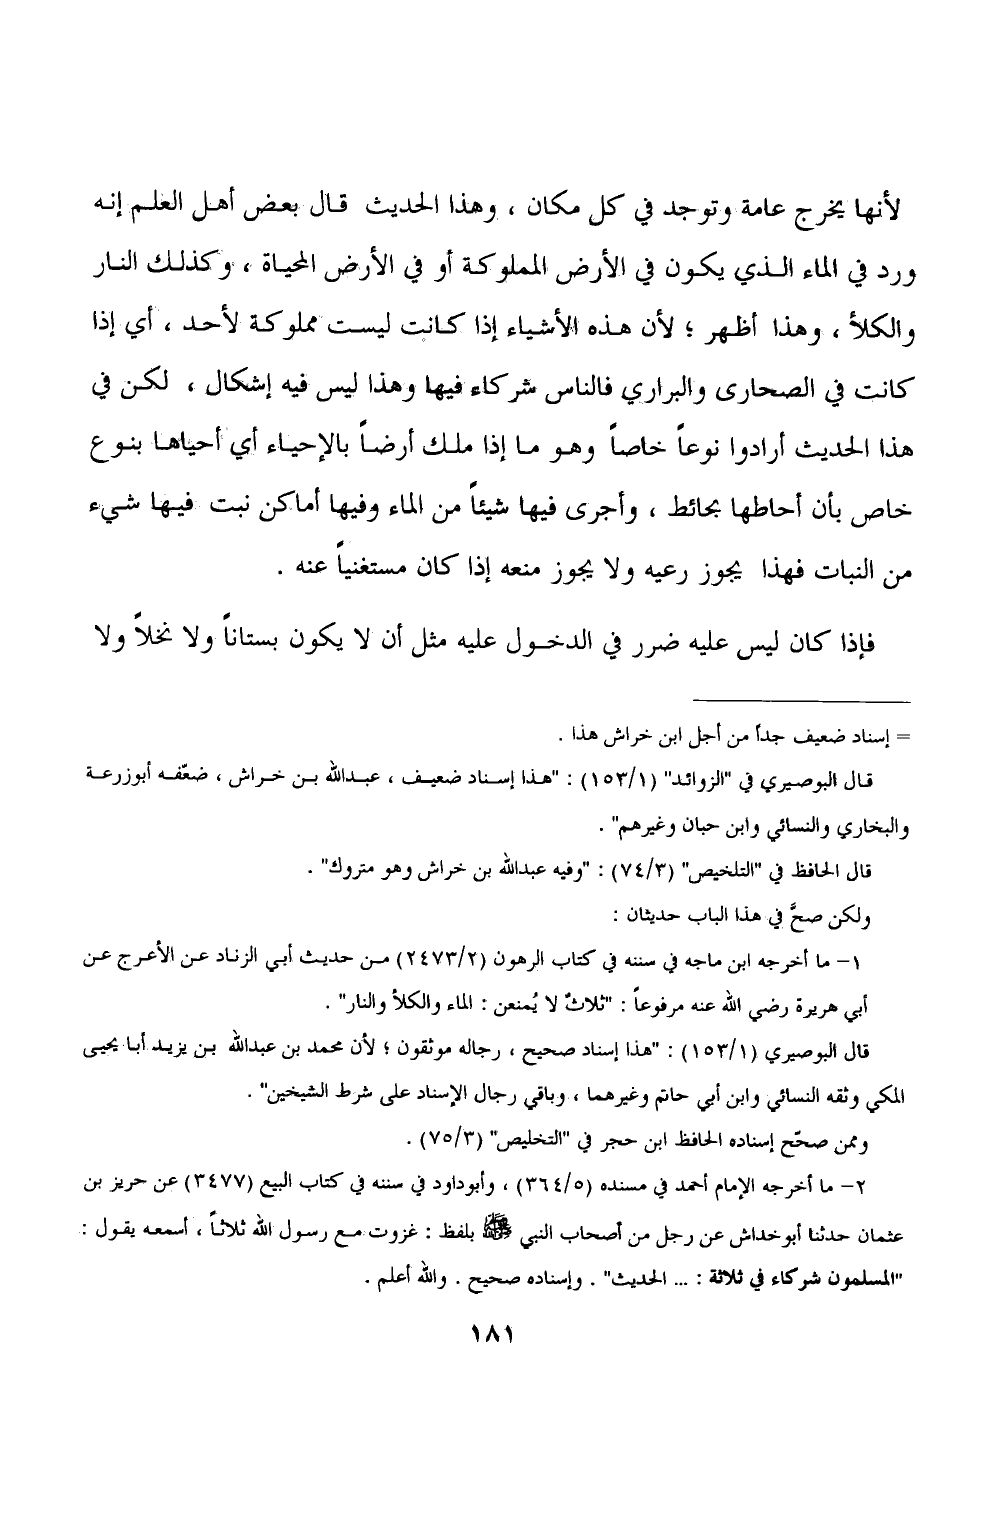 لأنها يخرج عامة وتوجد في كل مكان ، وهذا الحديث قال بعض أهل العلم إنه
ورد في الماء الذي يكون في الأرض المملوكة أو في الأرض المحياة ، وكذلك النار
والكلأ ، وهذا أظهر ؛ لأن هذه الأشياء إذا كانت ليست مملوكة لأحد ، أي إذا
كانت في الصحارى والبراري فالناس شركاء فيها وهذا ليس فيه إشكال ، لكن في
هذا الحديث أرادوا نوعاً خاصاً وهو ما إذا ملك أرضاً بالإحياء أي أحياها بنوع
خاص بأن أحاطها بحائط ، وأجرى فيها شيئاً من الماء وفيها أماكن نبت فيها شيء
من النبات فهذا يجوز رعيه ولا يجوز منعه إذا كان مستغنياً عنه .
فإذا كان ليس عليه ضرر في الدخول عليه مثل أن لا يكون بستاناً ولا نخلاً ولا
= إسناد ضعيف جداً من أجل ابن خراش هذا .
قال البوصيري في "الزوائد" (١٥٣/١) : "هذا إسناد ضعيف ، عبدالله بن خراش ، ضعّفه أبوزرعة
والبخاري والنسائي وابن حبان وغيرهم" .
قال الحافظ في "التلخيص" (٧٤/٣) : "وفيه عبدالله بن خراش وهو متروك" .
ولكن صحَّ في هذا الباب حديثان :
١- ما أخرجه ابن ماجه في سننه في كتاب الرهون (٢٤٧٣/٢) من حديث أبي الزناد عن الأعرج عن
أبي هريرة رضي الله عنه مرفوعاً : "ثلاثٌ لا يُمنعن : الماء والكلأ والنار" .
قال البوصيري (١٥٣/١) : "هذا إسناد صحيح ، رجاله موثقون ؛ لأن محمد بن عبدالله بن يزيد أبا يحيى
المكي وثقه النسائي وابن أبي حاتم وغيرهما ، وباقي رجال الإسناد على شرط الشيخين" .
وممن صحّح إسناده الحافظ ابن حجر في "التخليص" (٧٥/٣) .
٢- ما أخرجه الإمام أحمد في مسنده (٣٦٤/٥) ، وأبوداود في سننه في كتاب البيع (٣٤٧٧) عن حريز بن
عثمان حدثنا أبوخداش عن رجل من أصحاب النبي ﷺ بلفظ : غزوت مع رسول الله ثلاثاً ، أسمعه يقول :
"المسلمون شركاء في ثلاثة : ... الحديث" . وإسناده صحيح . والله أعلم .
١٨١